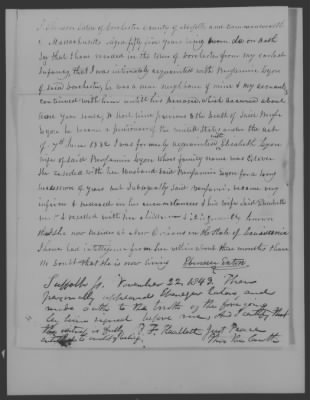 I Ebenezer Eaton of Dorchester County of Norfolk and Commonwealth
of Massachusetts aged fifty five years being sworn do on oath
say that I have resided in the town of Dorchester from my earliest
infancy that I was intimately acquainted with Benjamin Lyon
of said Dorchester, he was a near neighbour of mine & my account
continued with him untill his
years since, to
Lyon he became a pensioner of the United States under the act
of 7th June 1832 I was formerly acquainted with Elizabeth Lyon
wife of said Benjamin Lyon whose family name was
She resided with her husband said Benjamin Lyon for a long
succession of years but subsequently said Benjamin became very
infirm & in his circumstances & his wife said Elizabeth
resided with her children
that she now resides at New Orleans in the State of Louisiana
I have had intelligence from her within about three months & have
no doubt that she is now living Ebenezer Eaton
Suffolk ss. November 22, 1843. Then
personally appeared Ebenezer Eaton and
made oath to the truth of the foregoing
by him signed before me, and I certify that
the is fully
entitled to credit & belief. B. F. Hallett Just. Peace
thro the County